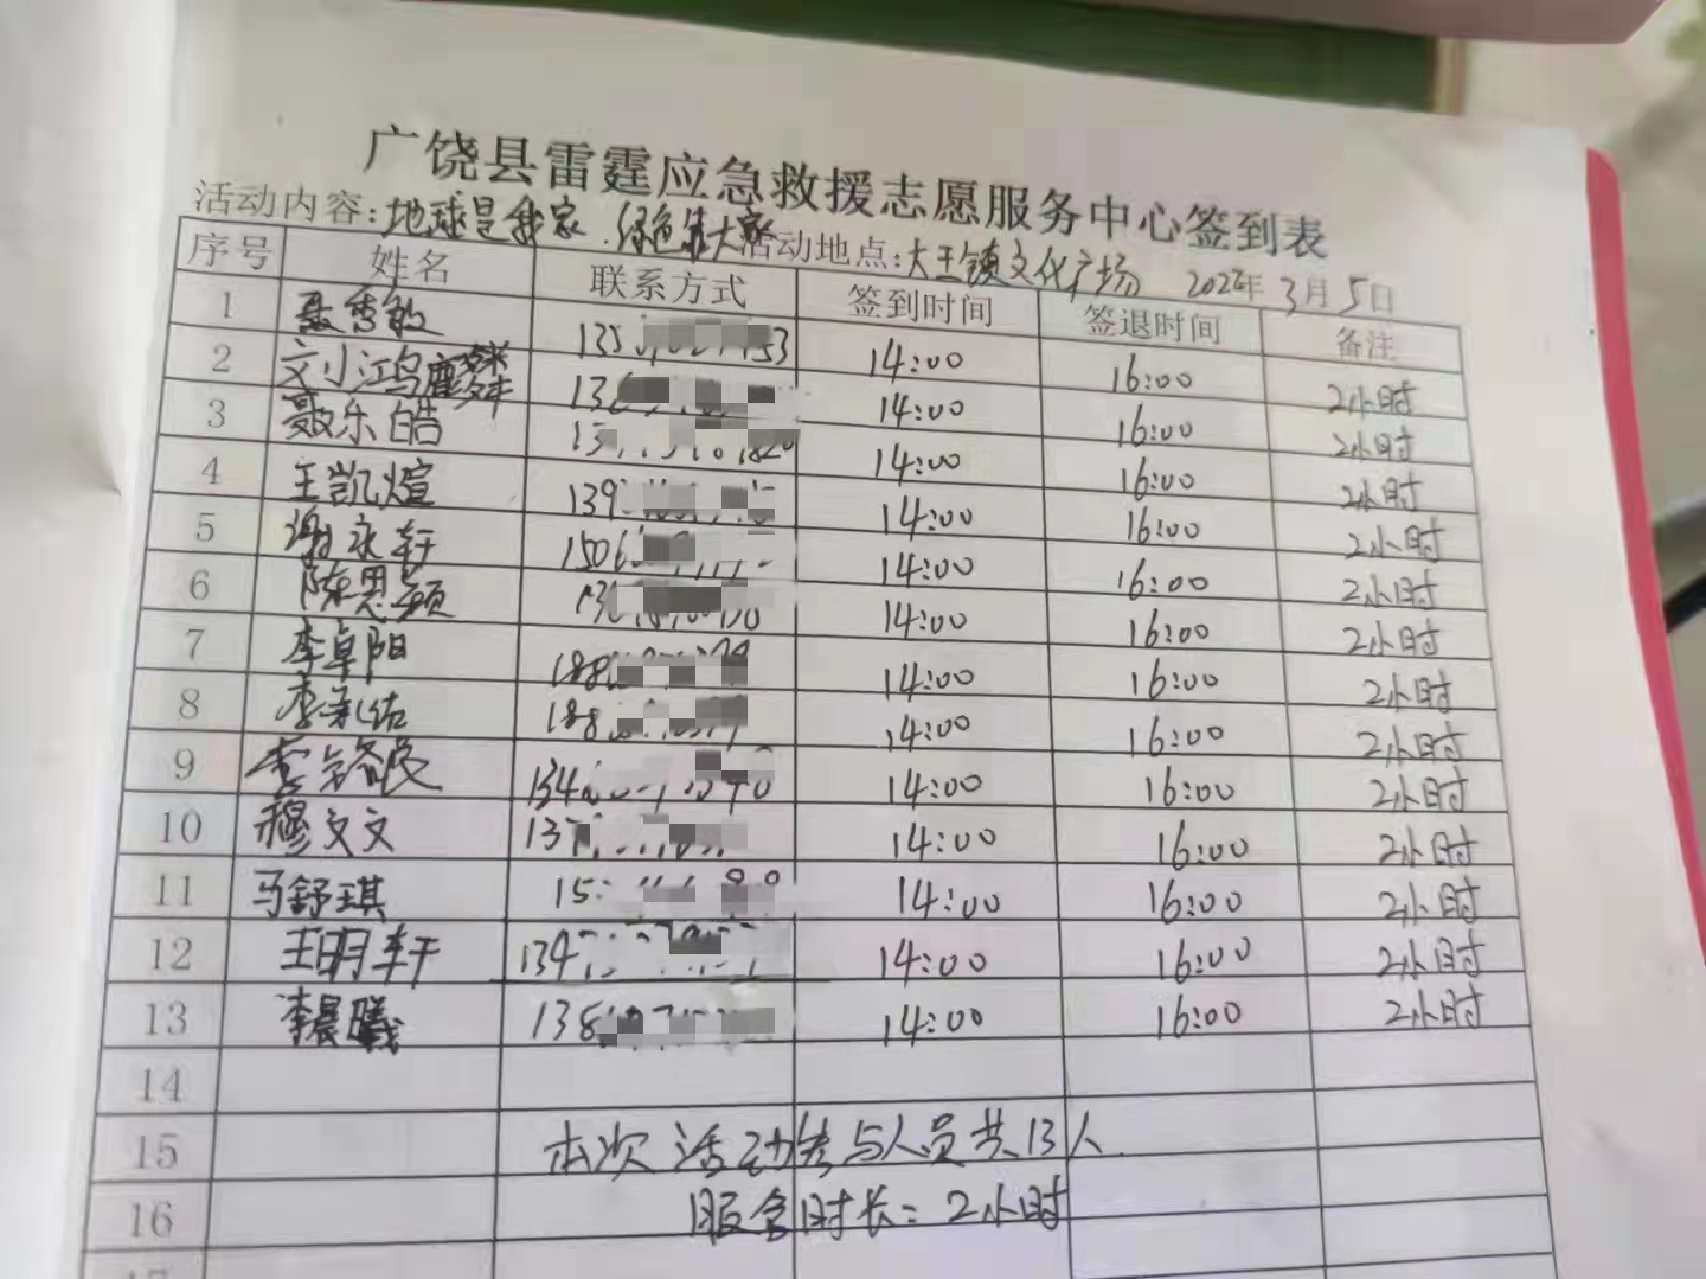 广饶县雷霆应急救援志愿服务中心签到表
活动内容:地球是我家,绿色靠大家 活动地点:大王镇文化广场 2022年3月5日
序号 姓名 联系方式 签到时间 签退时间 备注
1 聂秀敏 14:00 16:00 2小时
2 14:00 16:00 2小时
3 聂乐皓 14:00 16:00 2小时
4 王凯煊 139 14:00 16:00 2小时
5 谢永轩 1506 14:00 16:00 2小时
6 陈思颖 14:00 16:00 2小时
7 李卓阳 188 14:00 16:00 2小时
8 李 佑 188 14:00 16:00 2小时
9 李 14:00 16:00 2小时
10 穆文文 137 14:00 16:00 2小时
11 马舒琪 15 14:00 16:00 2小时
12 王明轩 134 14:00 16:00 2小时
13 李晨曦 138 14:00 16:00 2小时
14
15 本次活动参与人员共13人
16 服务时长:2小时